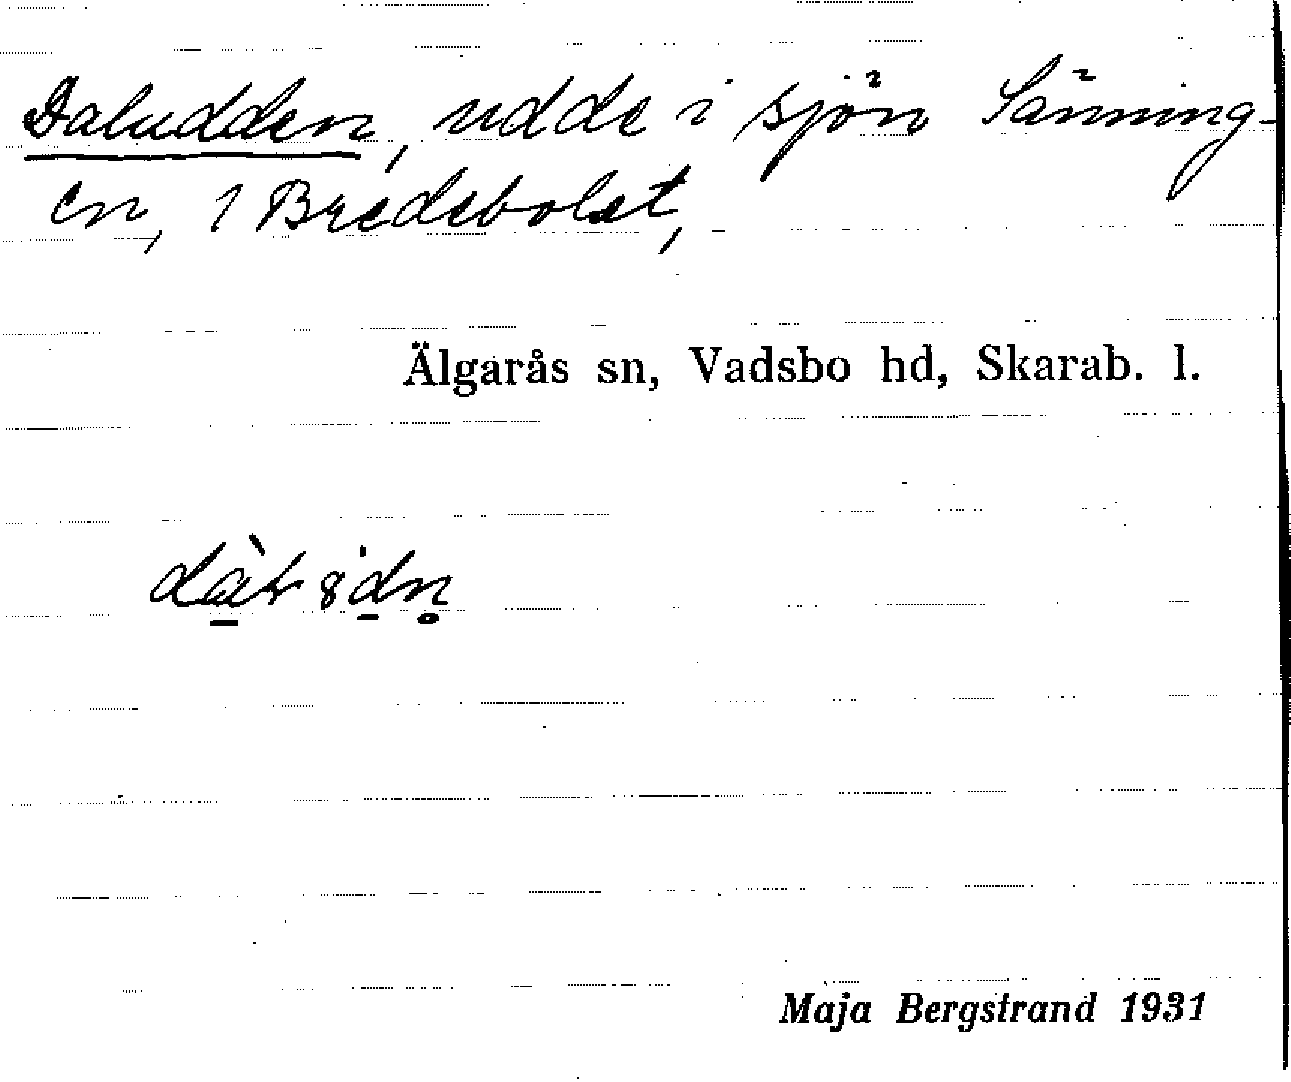 Daludden, udde i sjön Sänning-
en, 1 Bredebolet,
Älgarås sn, Vadsbo hd, Skarab. l.
Maja Bergstrand 1931